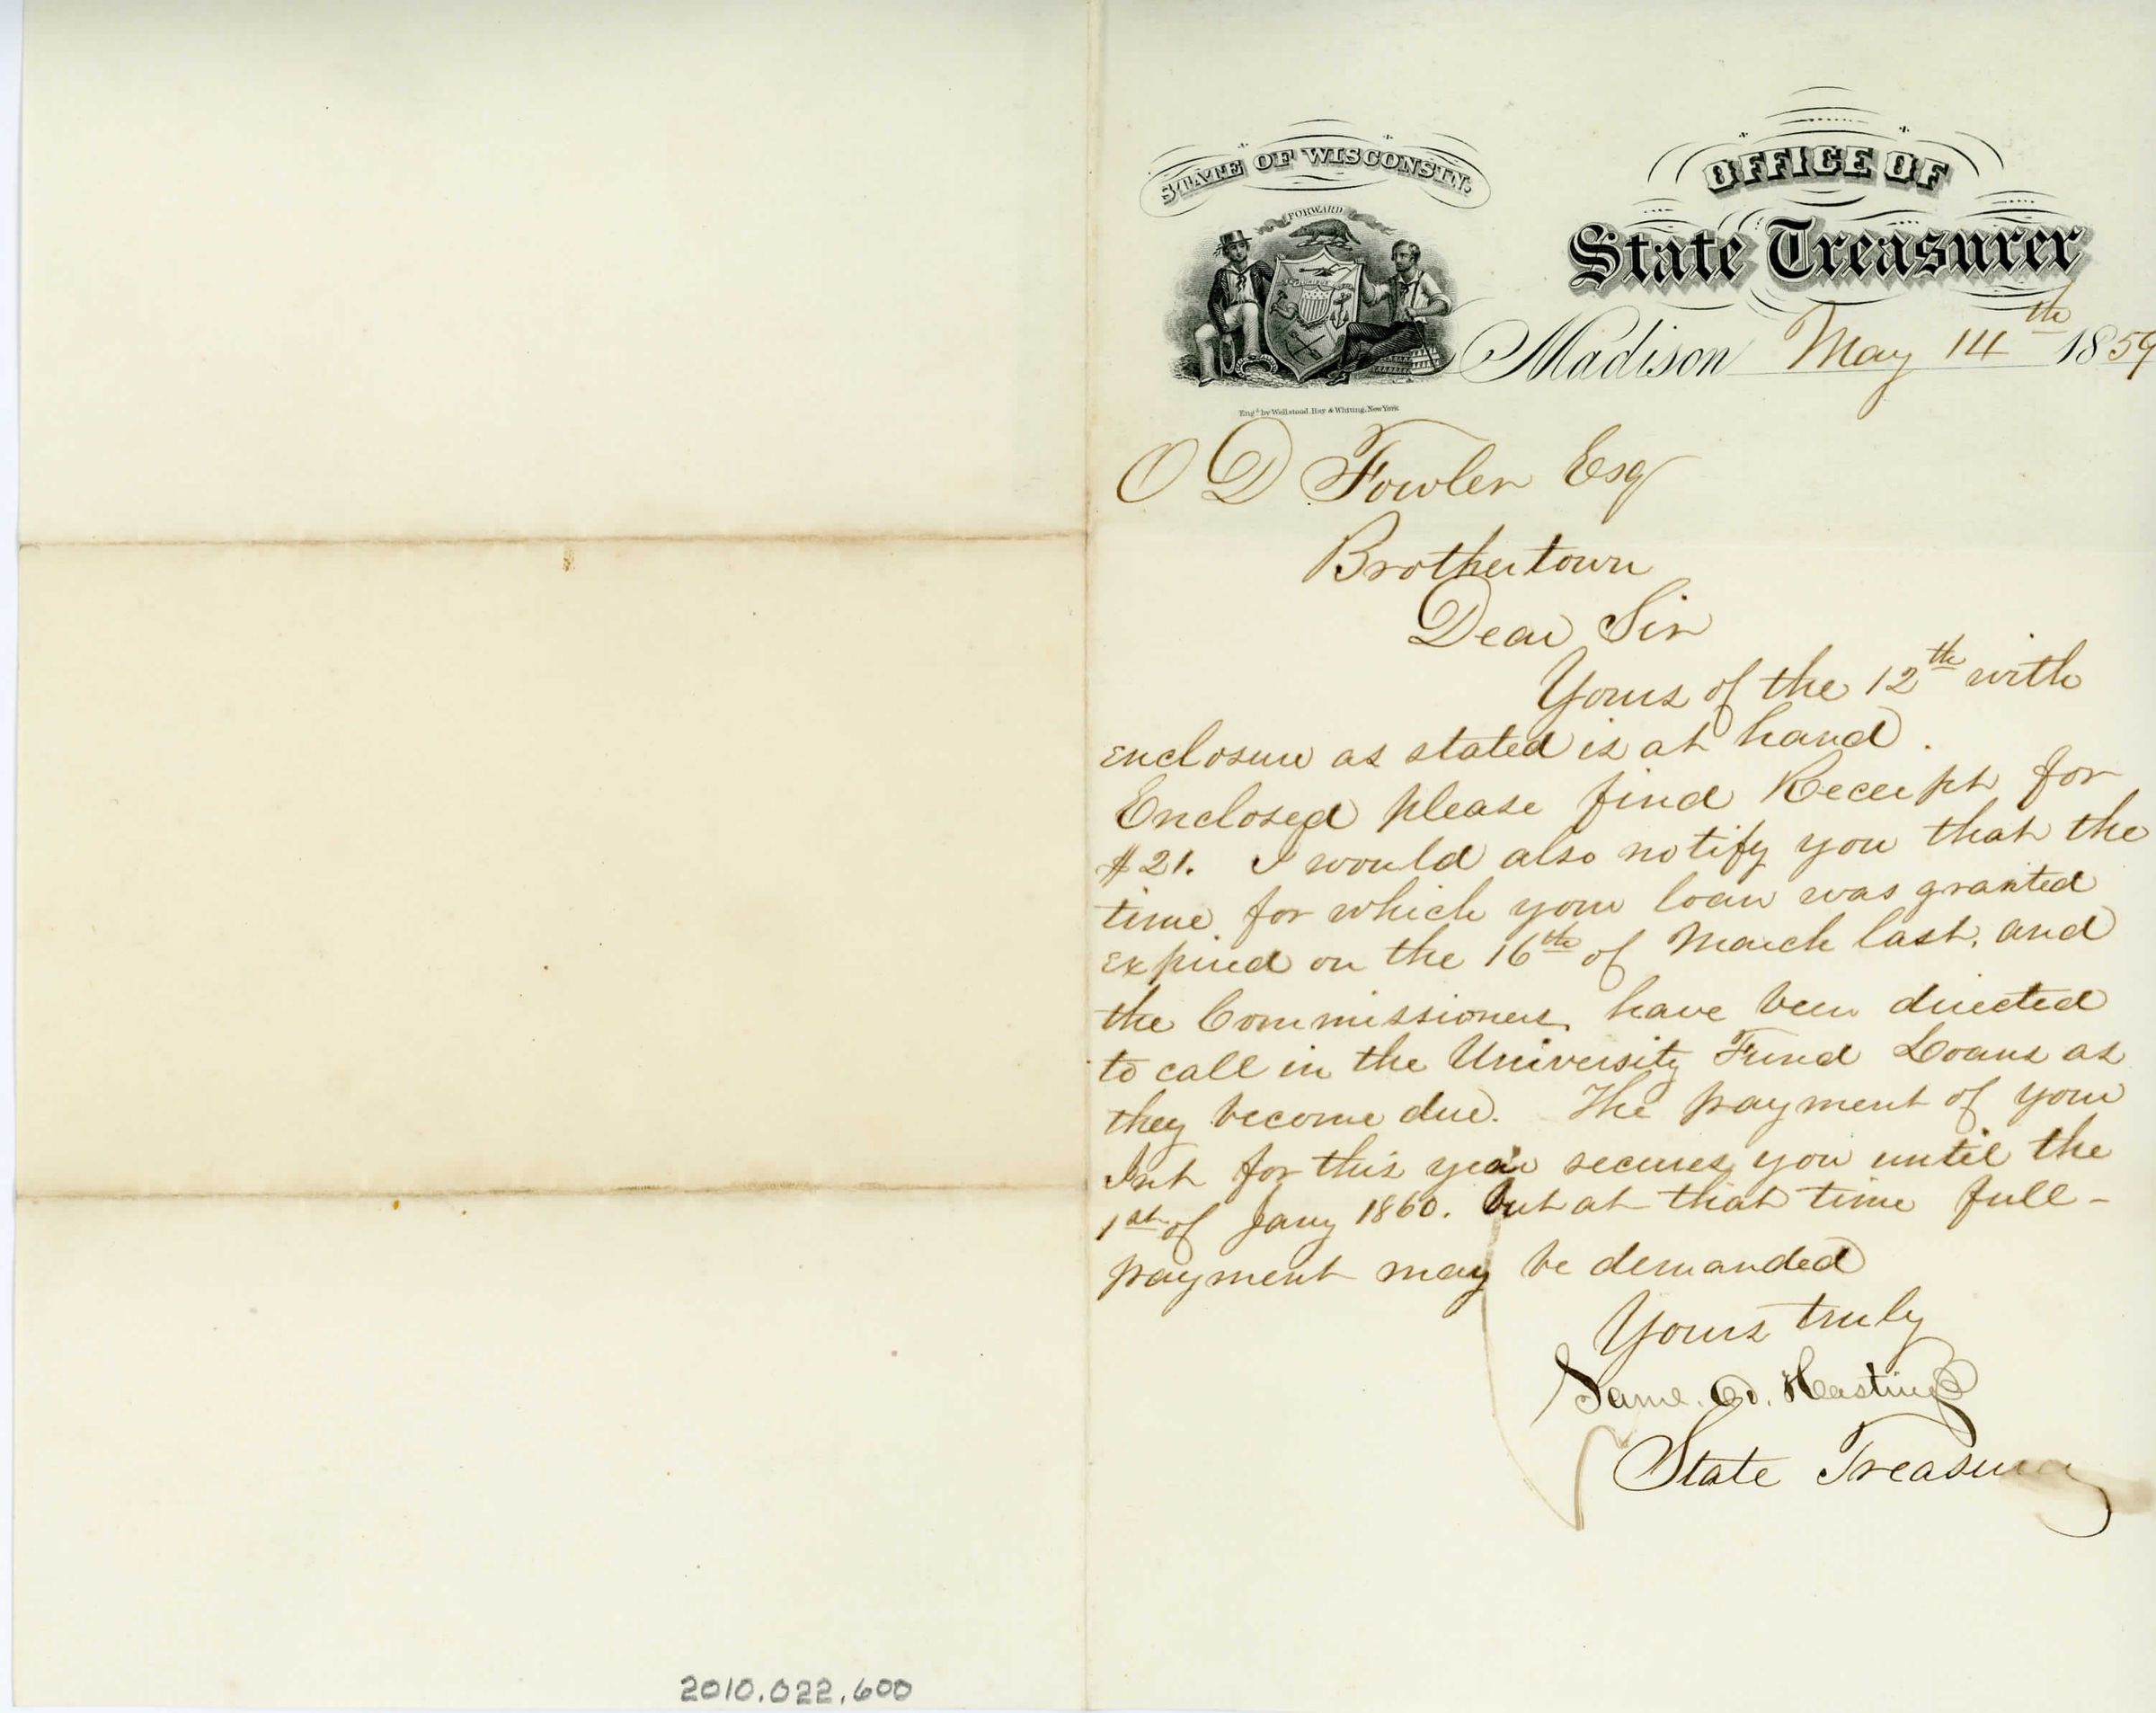 STATE OF WISCONSIN.
FORWARD
OFFICE OF
State Treasurer
Madison May 14th 1859
Engd by Wellstood, Hay & Whiting, New York
O D Fowler Esq
Brothertown
Dear Sir
Yours of the 12th with
enclosure as stated is at hand.
Enclosed please find Receipt for
$21. I would also notify you that the
time for which your loan was granted
expired on the 16th of March last, and
the Commissioners have been directed
to call in the University Fund Loans as
they become due. The payment of your
Int for this year secures you until the
1st of Jany 1860. but at that time full-
payment may be demanded
Yours truly
Saml. D. Hastings
State Treasurer
2010.022.600